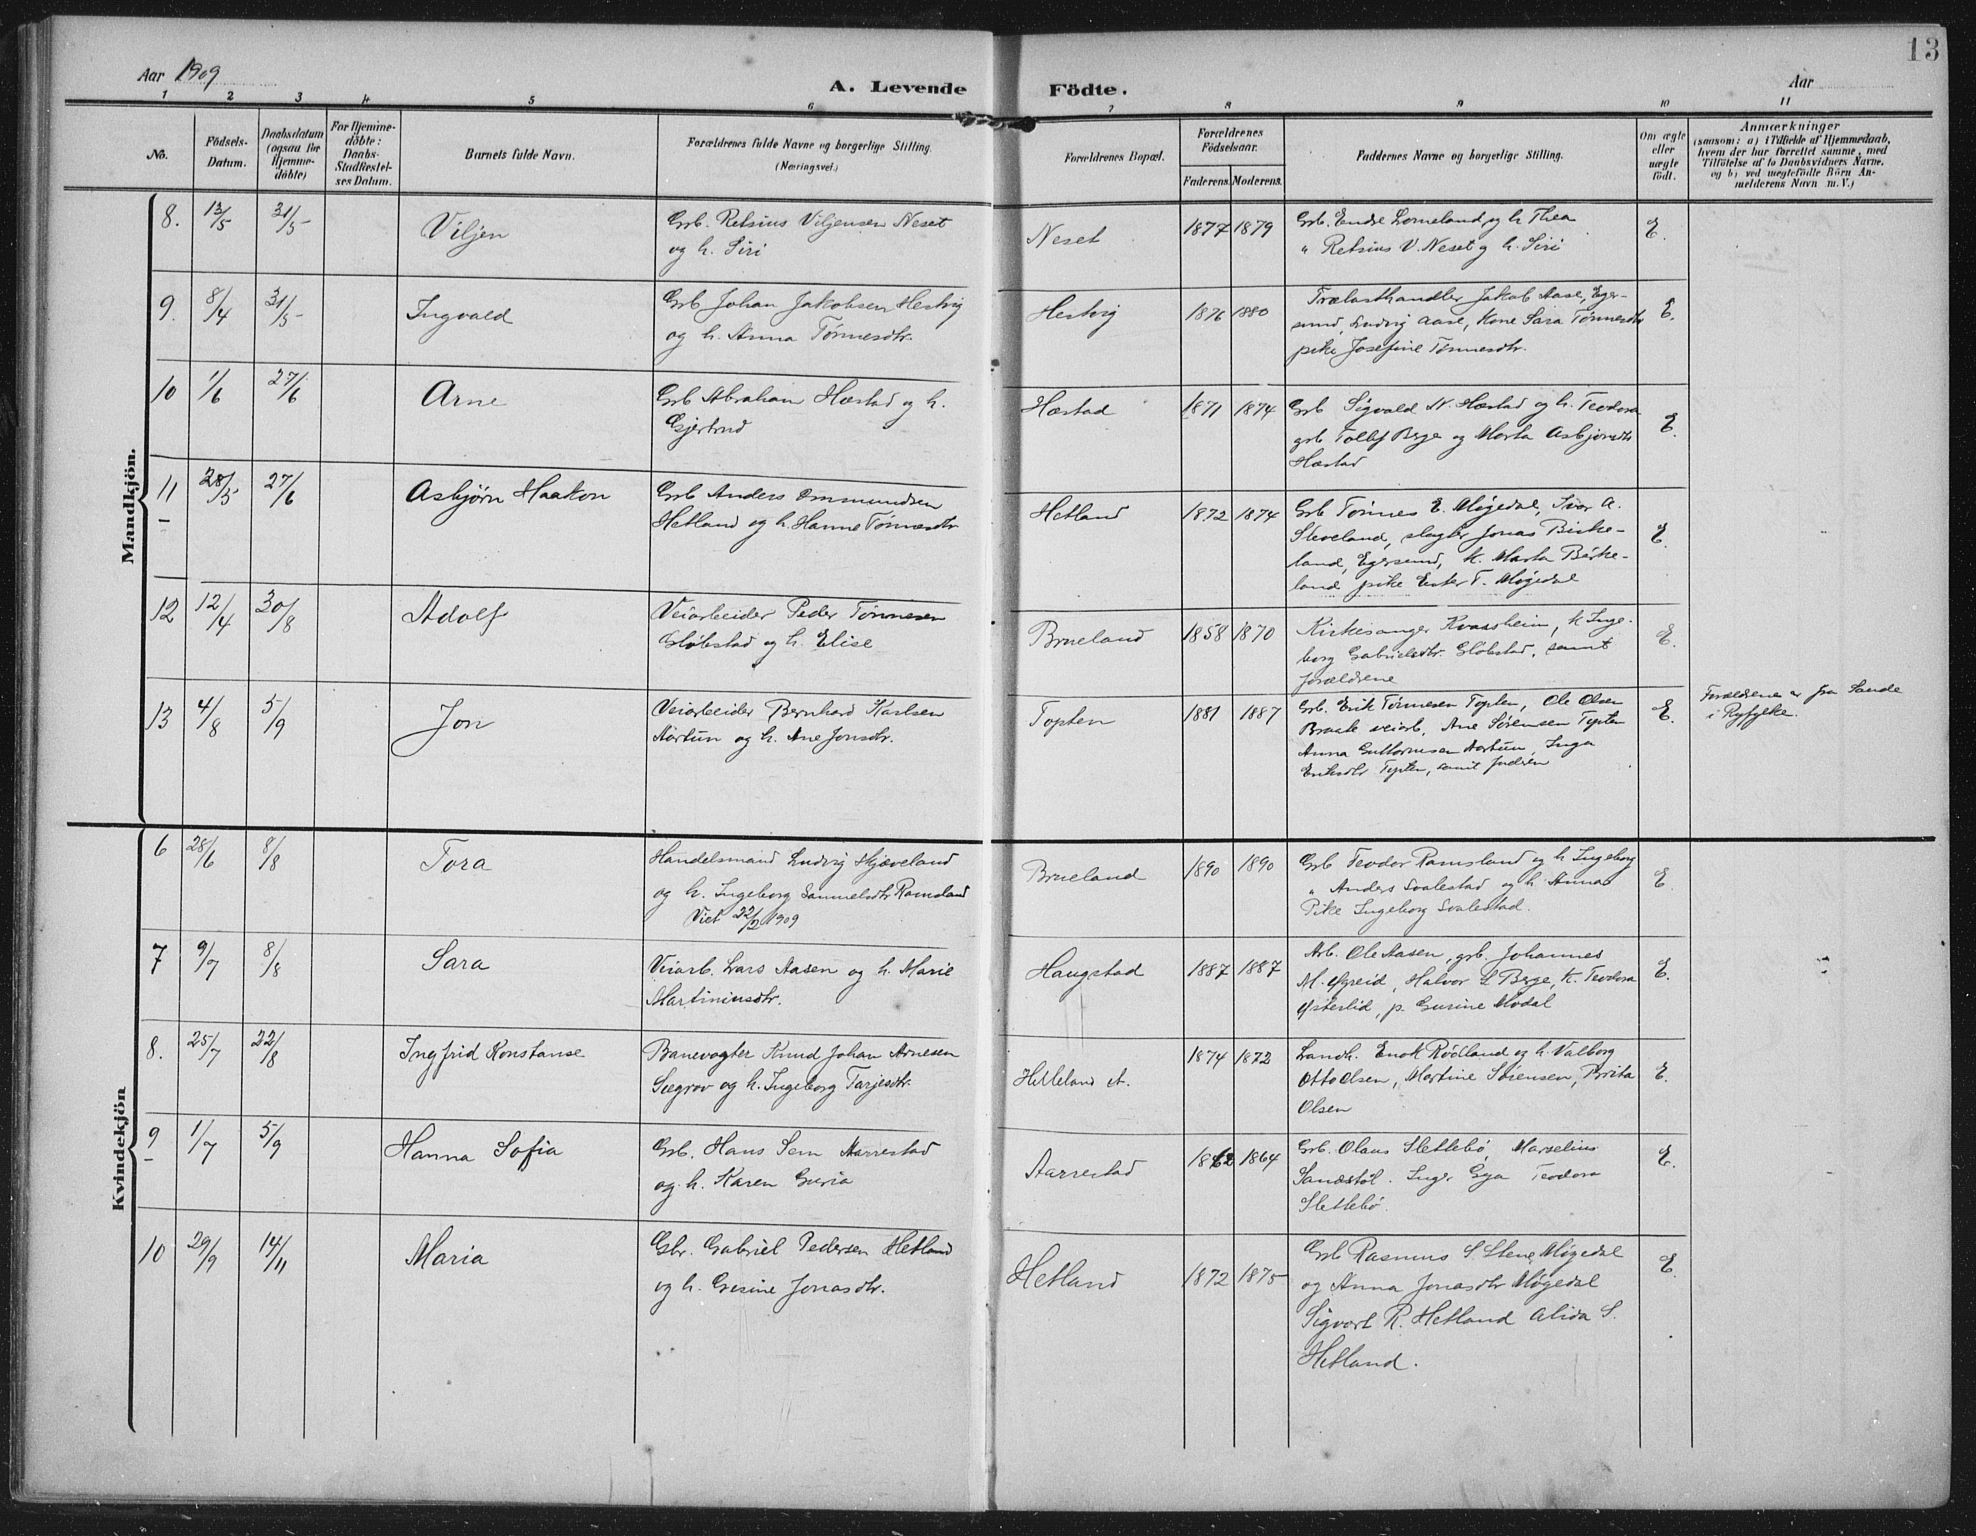 13
Aar 1909
A. Levende Födte.
Aar
1 2 3 4 5 6 7 8 9 10 11
No.
Födsels-
Datum.
Daabsdatum
(ogsaa for
Hjemme-
döbte)
For Hjemme-
döbte:
Daabs-
Stadfæstel-
ses Datum.
Barnets fulde Navn.
Forældrenes fulde Navne og borgerlige Stilling.
(Næringsvei.)
Forældrenes Bopæl.
Forældrenes
Födselsaar.
Faderens. Moderens.
Faddernes Navne og borgerlige Stilling.
Om ægte
eller
uægte
födt.
Anmærkninger
(saasom: a) i Tilfælde af Hjemmedaab,
hvem der har forrettet samme, med
Tilföielse af to Daabsvidners Navne,
og b) ved uægtefödte Börn An-
melderens Navn m. V.)
Mandkjön.
8. 13/5 31/5 Viljen
Grb. Retsius Viljensen Neset
og h. Siri
Neset 1877 1879
Grb. Endre Lomeland og h. Thea
" Retsius V. Neset og h. Siri
E.
9. 8/4 31/5 Ingvald
Grb Johan Jakobsen Hestvig
og h. Anna Tønnesdtr.
Hestvig 1876 1880
Trælasthandler Jakob Aase, Eger-
sund, Ludvig Aase, Kone Sara Tønnesdtr
pike Josefine Tønnesdtr.
E.
10 1/6 27/6 Arne
Grb Abraham Hæstad og h.
Gjertrud
Hæstad 1871 1874
Grb Sigvald N. Hæstad og h. Teodora
grb Tollef Berge og Marta Asbjørnsdtr
Hæstad
E.
11 28/5 27/6 Asbjørn Haakon
Grb Anders Ommundsen
Hetland og h. Hanne Tønnesdtr
Hetland 1872 1874
Grb Tønnes E. Møgedal, Ivar A.
Sleveland, slagter Jonas Birke-
land, Egersund, K. Marta Birke-
land pike Ester T. Møgedal
E.
12 12/4 30/8 Adolf
Veiarbeider Peder Tønnesen
Gløbstad og h. Elise
Brueland 1858 1870
Kirkesanger Kvassheim, K Inge-
borg Gabrielsdtr. Gløbstad, samt
forældrene
E.
13 4/8 5/9 Jon
Veiarbeider Bernhard Karlsen
Aartun og h. Ane Jonsdtr.
Topten 1881 1887
Grb. Erik Tønnesen Topten, Ole Olsen
Braate veiarb, Ane Sørensen Topten
Anna Guttormsen Aartun, Inga
Eriksdtr Topten, samt faderen
E.
Forældrene er fra Sande
i Ryfylke.
Kvindekjön
6 28/6 8/8 Tora
Handelsmand Ludvig Skjæveland
og h. Ingeborg Samuelsdtr Ramsland
Viet 22/2 1909
Brueland 1890 1890
Grb Teodor Ramsland og h Ingeborg
" Anders Svalestad og h Anna
Pike Ingeborg Svalestad.
E.
7 9/7 8/8 Sara
Veiarb. Lars Aasen og h. Marie
Martiniusdtr.
Haugstad 1887 1887
Arb. Ole Aasen, grb. Johannes
M. Øgreid, Halvor L Berge, K. Teodora
Østerlid, p. Gurine Modal
E.
8. 25/7 22/8 Ingfrid Konstanse
Banevogter Knud Johan Arnesen
Sægrov og h. Ingeborg Tarjesdtr.
Helleland st. 1874 1872
Landh. Enok Rødland og h. Valborg
Otto Olsen, Martine Sørensen, Brita
Olsen
E.
9 1/7 5/9 Hanna Sofia
Grb. Hans Sem Aarrestad
og h. Karen Guria
Aarrestad 1862 1864
Grb. Olaus Slettebø, Marselius
Sandstøl. Inger Eya Teodora
Slettebø.
E.
10 29/9 14/11 Maria
Gbr. Gabriel Pedersen Hetland
og h. Gesine Jonasdtr.
Hetland 1872 1875
Grb Rasmus S. Stene Møgedal
og Anna Jonasdtr Møgedal
Sigvart R. Hetland Alida S.
Hetland.
E.